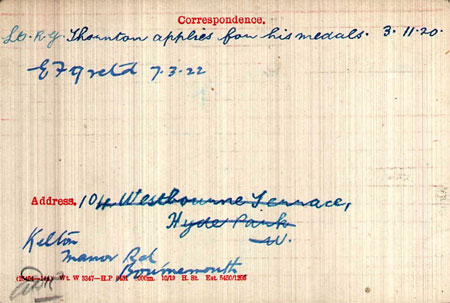 Correspondence.
Lt. R.G. Thounton applies for his medals. 3.11.20.
EF9 retd 7.3.22
Address. 104 Westbourne Terrace,
Hyde Park
W.
Kelton
Manor Rd
Bournemouth
Wt. W 3347—H.P. 1000m. 10/19 H. St. Est 5450/1206